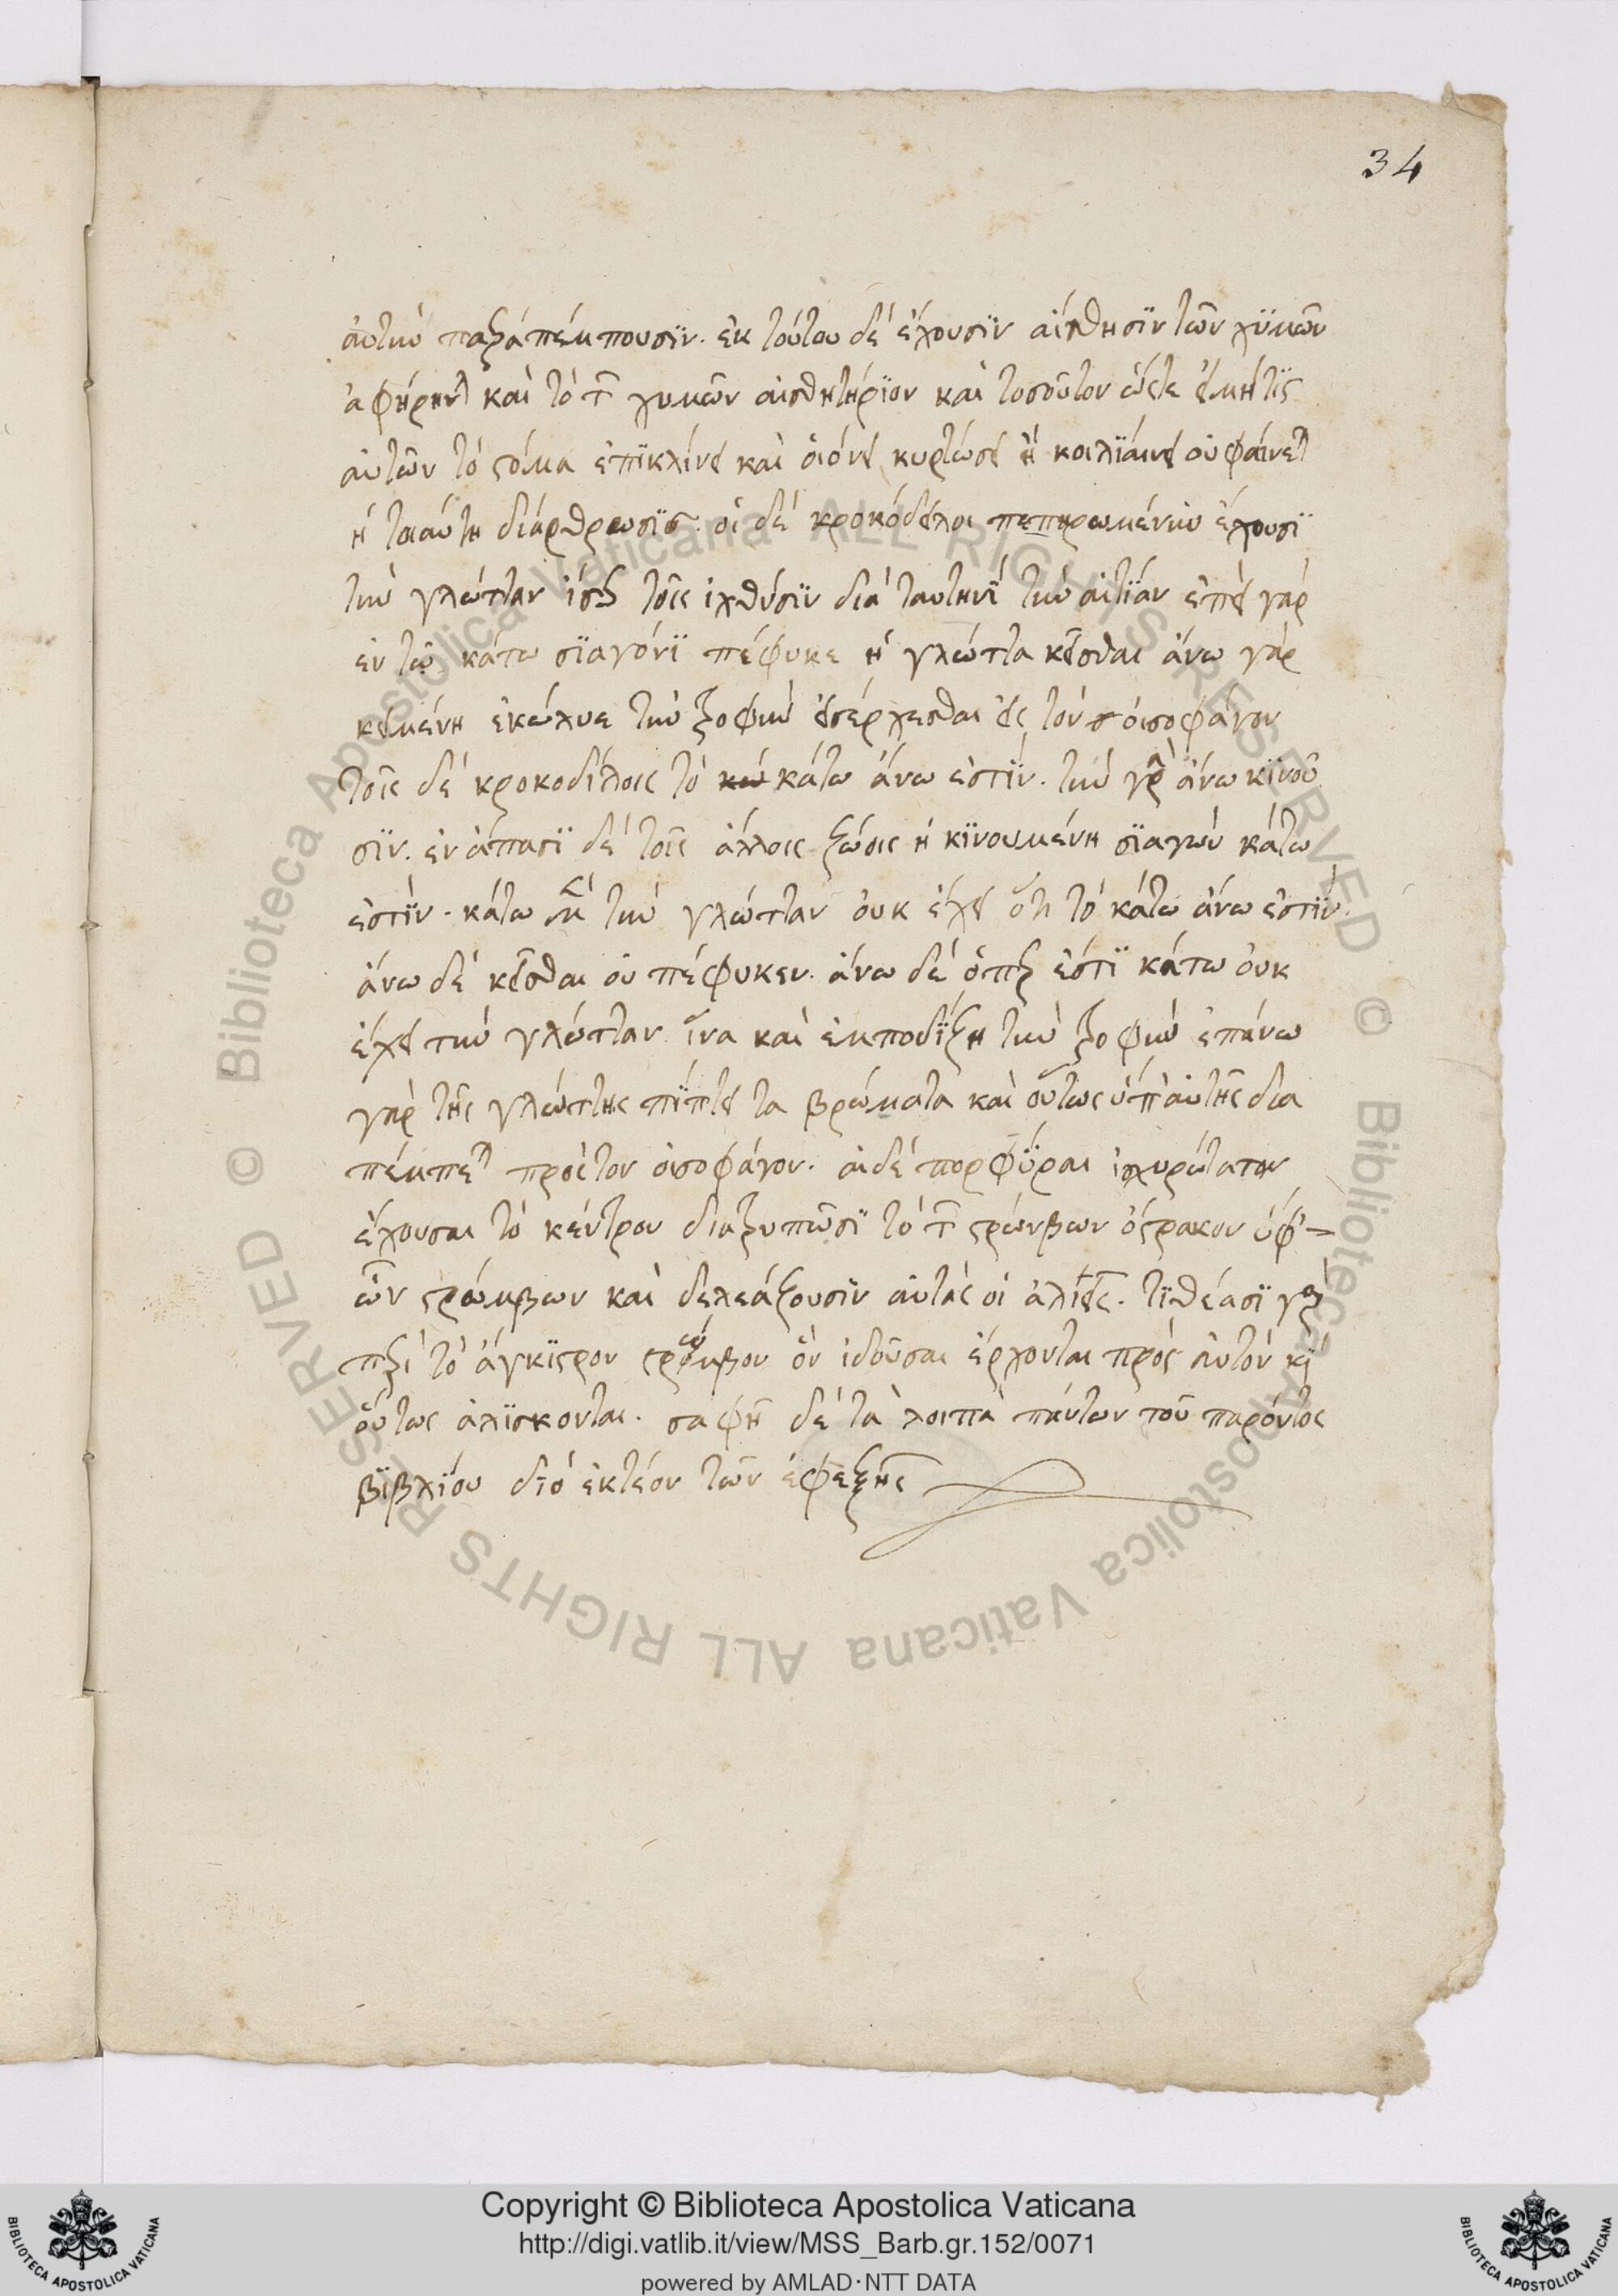 34
αὐτὴν παραπέμπουσϊν. ἐκ τούτου δέ ἔχουσϊν αἴσθησϊν τῶν χϋμῶν
ἀφήρηνται καὶ τὸ τῶν χυμῶν αἰσθητήρϊον καὶ τοσοῦτον ὥστε εἰ μή τϊς
αὐτῶν τὸ στόμα ἐπϊκλίνει καὶ οἱονεὶ κυρτώσει οὐ φαίνεται
ἡ τοιαύτη διάρθρωσϊς. οἱ δέ κροκόδειλοι πεπηρωμένην ἔχουσϊ
τὴν γλώτταν ὥσπερ τοῖς ἰχθύσϊν διὰ ταυτηνὶ τὴν αἰτϊάν ἐπεὶ γάρ
ἐν τῷ κάτω σϊαγόνϊ πέφυκε ἡ γλώττα κεῖσθαι ἄνω γάρ
κειμένη ἐκώλυε τὴν τροφὴν εἰσέρχεσθαι εἰς τὸν οἰσοφάγον
τοῖς δέ κροκοδίλοις τὸ κάτω ἄνω ἐστϊν. τὴν γὰρ ἄνω κϊνοῦ
σϊν. ἐν ἅπασϊ δέ τοῖς ἄλλοις ζώοις ἡ κϊνουμένη σϊαγών κάτω
ἐστϊν. κάτω τὴν γλώτταν οὐκ ἔχει ὅτι τὸ κάτω ἄνω ἐστϊν.
ἄνω δέ κεῖσθαι οὐ πέφυκεν. ἄνω δέ ὅπερ ἐστϊ κάτω οὐκ
ἔχει τὴν γλώτταν ἵνα καὶ ἐμποδϊζῃ τὴν τροφὴν ἐπάνω
γάρ τῆς γλώττης πϊπτει τα βρώματα καὶ οὕτως ὑπ' αὐτῆς δια
πέμπεται πρὸς τον οἰσοφάγον. αἱ δέ πορφϋραι ἰσχυρώτατον
ἔχουσαι τὸ κέντρον διατρυπῶσϊ τὸ τῶν στρώνβων ὄστρακον ὑφ'
ὧν στρώμβων καὶ δελεάζουσϊν αὐτὰς οἱ ἁλιεῖς. τϊθέασϊ γὰρ
περὶ τὸ ἄγκϊστρον στρώμβον ὃν ἰδοῦσαι ἔρχονται πρὸς αὐτὸν καὶ
οὕτως ἁλϊσκονται. σαφῆ δέ τὰ λοιπὰ πάντων τοῦ παρόντος
βϊβλϊου διό ἑκτέον τῶν ἐφεξῆς
Copyright © Biblioteca Apostolica Vaticana
http://digi.vatlib.it/view/MSS_Barb.gr.152/0071
powered by AMLAD·NTT DATA
BIBLIOTECA APOSTOLICA VATICANA
BIBLIOTECA APOSTOLICA VATICANA
© Biblioteca Apostolica Vaticana ALL RIGHTS RESERVED © Biblioteca Apostolica Vaticana ALL RIGHTS RESERVED